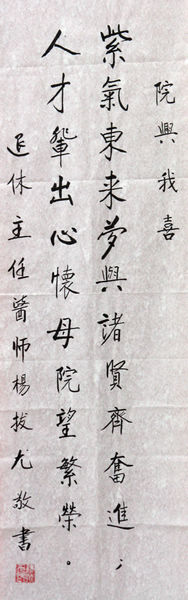 院興我喜
紫氣東来夢與諸賢齊奮進；
人才輩出心懷母院望繁榮。
退休主任醫师楊拔尤敬書